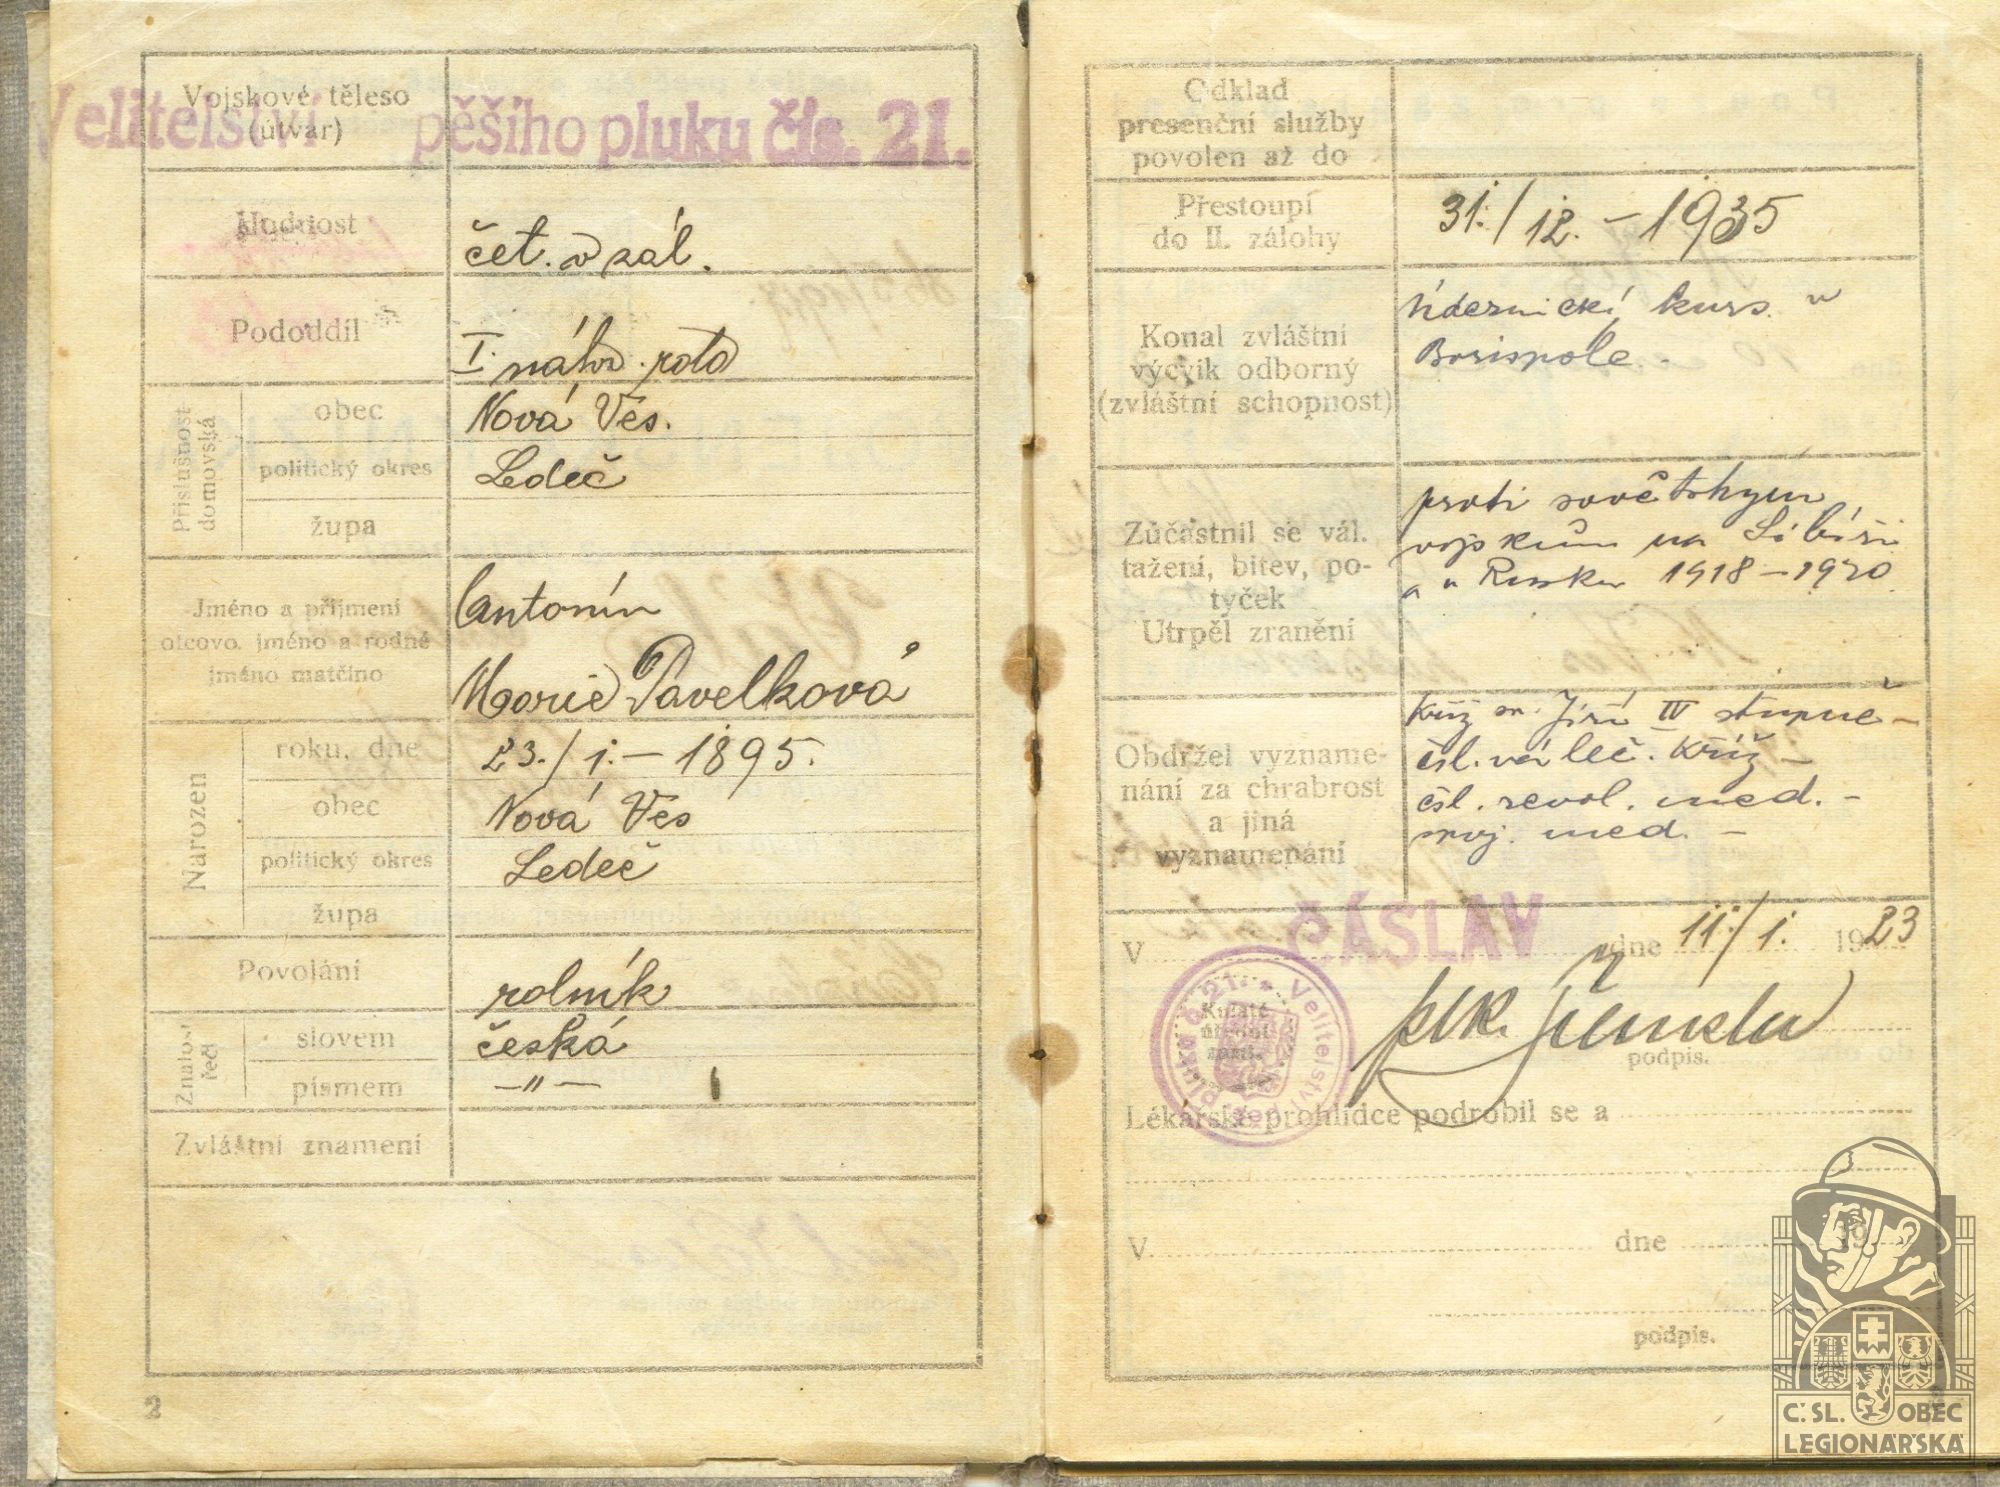 Velitelství pěšího pluku čís. 21.
Vojskové těleso
(útvar)
Hodnost
čet. v zál.
Pododdíl
I. náhr. rota
Příslušnost
domovská
obec
Nová Ves.
politický okres
Ledeč
župa
Jméno a příjmení
otcovo, jméno a rodné
jméno matčino
Antonín
Marie Pavelková
Narozen
roku, dne
23./1.–1895.
obec
Nová Ves
politický okres
Ledeč
župa
Povolání
rolník
Znalost
řeči
slovem
česká
písmem
–"–
Zvláštní znamení
2
Odklad
presenční služby
povolen až do
Přestoupí
do II. zálohy
31./12.–1935
Konal zvláštní
výcvik odborný
(zvláštní schopnost)
Údernický kurs. v
Borispole.
Zúčastnil se vál.
tažení, bitev, po-
tyček
Utrpěl zranění
proti sovětským
vojskům na Sibiři
a v Rusku 1918–1920
Obdržel vyzname-
nání za chrabrost
a jiná
vyznamenání
Kříž sv. Jiří IV stupně –
čsl. váleč. kříž –
čsl. revol. med. –
spoj. med. –
V ČÁSLAV dne 11./1. 1923
Kulaté
úřední
razít.
Velitelství
pluku č. 21.
plk.
podpis.
Lékařské prohlídce podrobil se a
V dne 19
podpis.
Č. SL. OBEC
LEGIONÁŘSKÁ